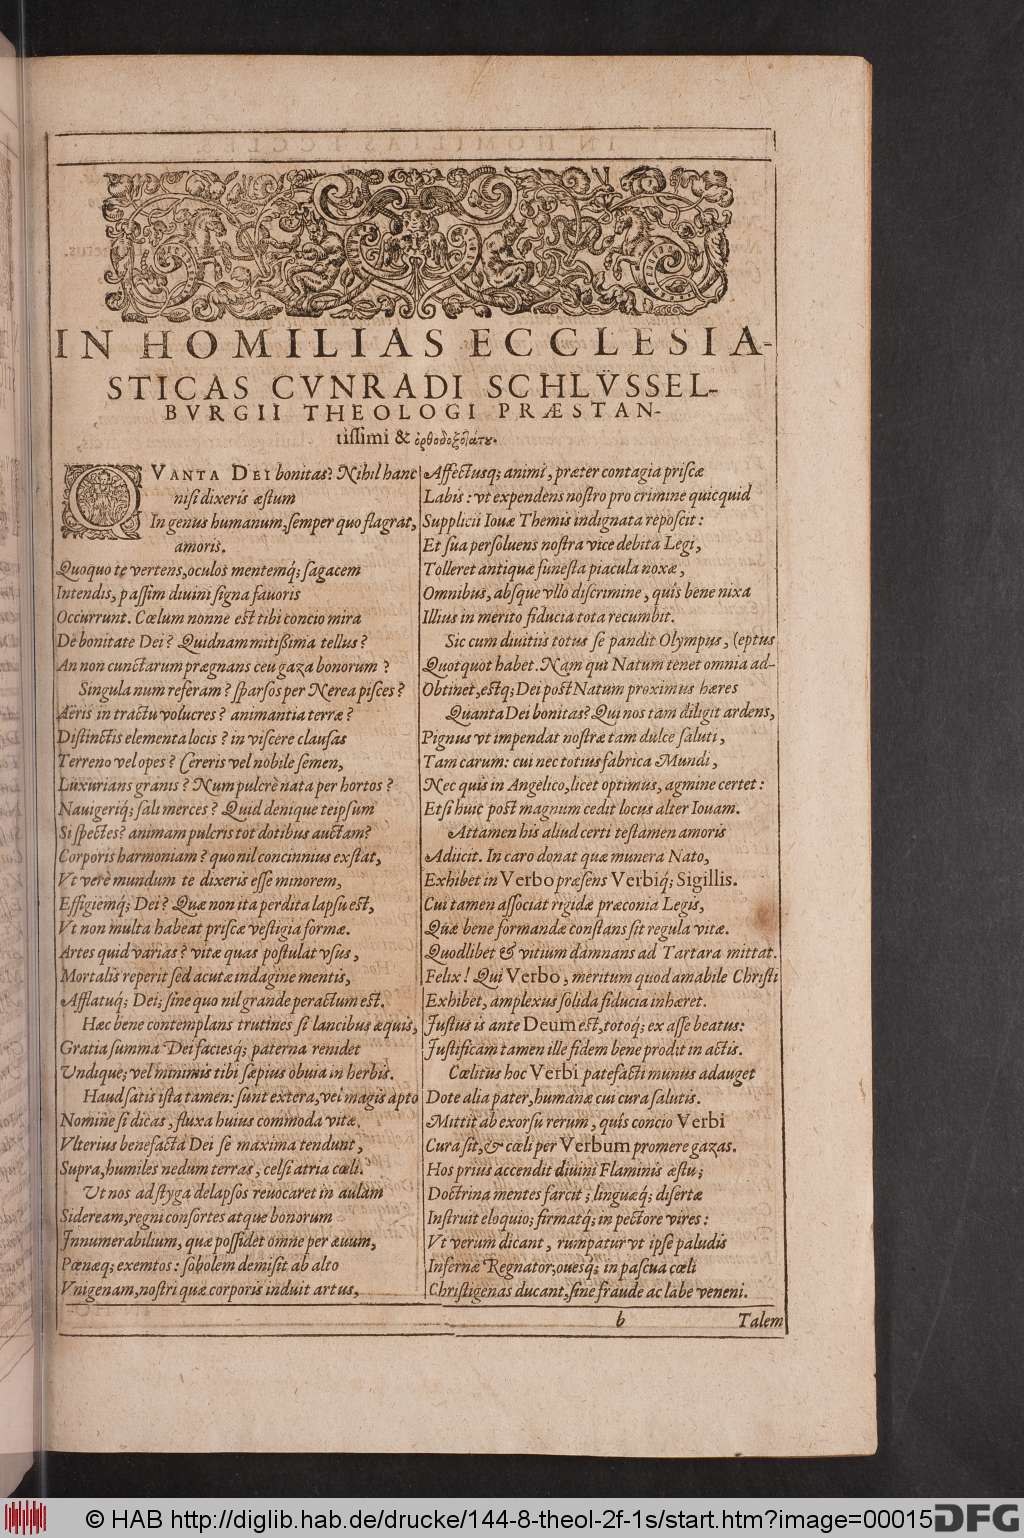 IN HOMILIAS ECCLESIA-
STICAS CVNRADI SCHLÜSSEL-
BVRGII THEOLOGI PRÆSTAN-
tissimi & ὀρθοδοξοτάτου.
QVANTA DEI bonitas? Nihil hanc
nisi dixeris æstum
In genus humanum, semper quo flagrat,
amoris.
Quoquo te vertens, oculos mentemq́; sagacem
Intendis, passim divini signa fauoris
Occurrunt. Cœlum nonne est tibi concio mira
De bonitate Dei? Quidnam mitißima tellus?
An non cunctarum prægnans ceu gaza bonorum?
Singula num referam? sparsos per Nerea pisces?
Aëris in tractu volucres? animantia terræ?
Distinctis elementa locis? in viscere clausas
Terreno vel opes? Cereris vel nobile semen,
Luxurians granis? Num pulcrè nata per hortos?
Nauigeriq́; sali merces? Quid denique teipsum
Si spectes? animam pulcris tot dotibus auctam?
Corporis harmoniam? quo nil concinnius exstat,
Vt verè mundum te dixeris esse minorem,
Effigiemq́; Dei? Quæ non ita perdita lapsu est,
Vt non multa habeat priscæ vestigia formæ.
Artes quid varias? vitæ quas postulat vsus,
Mortalis reperit sed acutæ indagine mentis,
Afflatuq́; Dei; sine quo nil grande peractum est.
Hæc bene contemplans trutines si lancibus æquis,
Gratia summa Dei faciesq́; paterna renidet
Undique; vel minimis tibi sæpius obuia in herbis.
Haud satis ista tamen: sunt extera, vel magis apto
Nomine si dicas, fluxa huius commoda vitæ.
Vlterius benefacta Dei se maxima tendunt,
Supra, humiles nedum terras, celsi atria cœli.
Ut nos ad styga delapsos reuocaret in aulam
Sideream, regni consortes atque bonorum
Innumerabilium, quæ possidet omne per æuum,
Pœnæq; exemtos: sobolem demisit ab alto
Vnigenam, nostri quæ corporis induit artus,
Affectusq; animi, præter contagia priscæ
Labis: vt expendens nostro pro crimine quicquid
Supplicii Iouæ Themis indignata reposcit:
Et sua persoluens nostra vice debita Legi,
Tolleret antiquæ funesta piacula noxæ,
Omnibus, absque vllo discrimine, quis bene nixa
Illius in merito fiducia tota recumbit.
Sic cum diuitiis totus se pandit Olympus, (eptus
Quotquot habet. Nam qui Natum tenet omnia ad-
Obtinet, estq; Dei post Natum proximus hæres
Quanta Dei bonitas? Qui nos tam diligit ardens,
Pignus vt impendat nostræ tam dulce saluti,
Tam carum: cui nec totius fabrica Mundi,
Nec quis in Angelico, licet optimus, agmine certet:
Etsi huic post magnum cedit locus alter Iouam.
Attamen his aliud certi testamen amoris
Adiicit. In caro donat quæ munera Nato,
Exhibet in Verbo præsens Verbiq́; Sigillis.
Cui tamen associat rigidæ præconia Legis,
Quæ bene formandæ constans sit regula vitæ.
Quodlibet & vitium damnans ad Tartara mittat.
Felix! Qui Verbo, meritum quod amabile Christi
Exhibet, amplexus solida fiducia inhæret.
Justus is ante Deum est, totoq́; ex asse beatus:
Justificam tamen ille fidem bene prodit in actis.
Cœlitus hoc Verbi patefacti munus adauget
Dote alia pater, humanæ cui cura salutis.
Mittit ab exorsu rerum, quîs concio Verbi
Cura sit, & cœli per Verbum promere gazas.
Hos prius accendit diuini Flaminis æstu;
Doctrina mentes farcit; linguæq́; disertæ
Instruit eloquio; firmatq́; in pectore vires:
Vt verum dicant, rumpatur vt ipse paludis
Infernæ Regnator; ouesq́; in pascua cœli
Christigenas ducant, sine fraude ac labe veneni.
b Talem
© HAB http://diglib.hab.de/drucke/144-8-theol-2f-1s/start.htm?image=00015
DFG